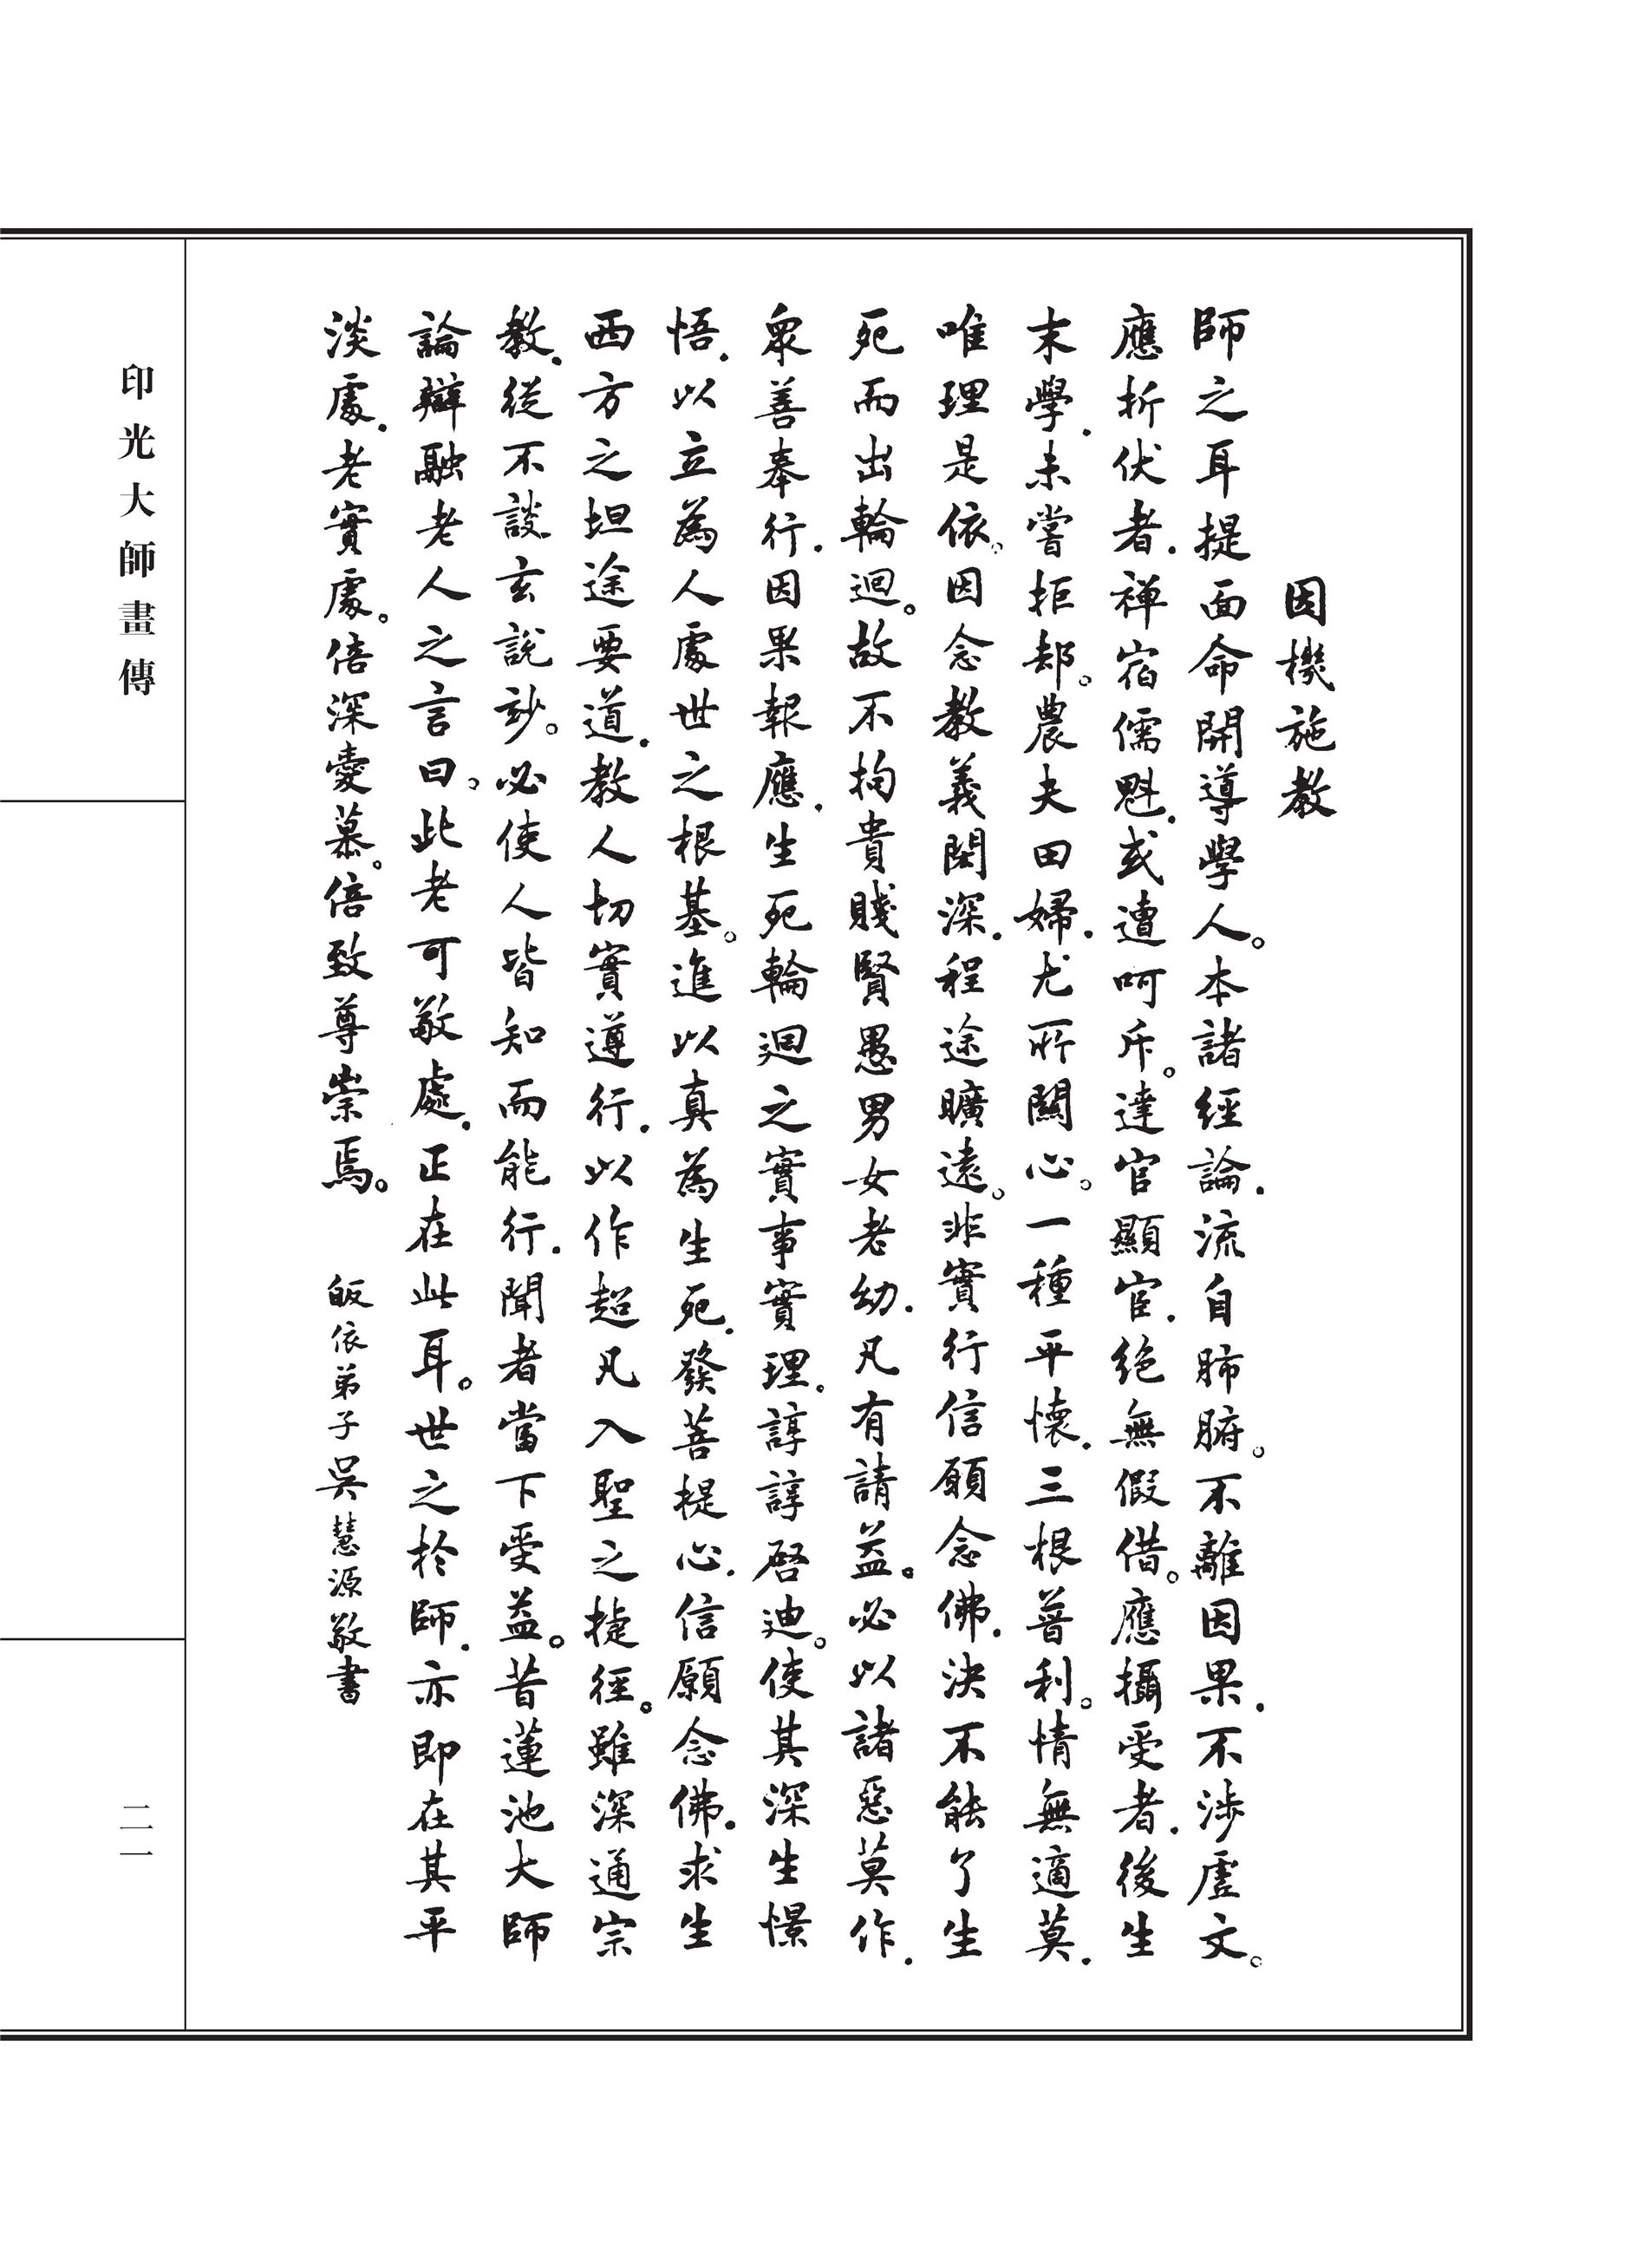 因機施教
師之耳提面命開導學人。本諸經論.流自肺腑。不離因果.不涉虛文。
應折伏者.禪宿儒魁.或遭呵斥。達官顯宦.絕無假借。應攝受者.後生
末學.未嘗拒却。農夫田婦.尤所關心。一種平懷.三根普利。情無適莫.
唯理是依。因念教義閎深.程途曠遠。非實行信願念佛.決不能了生
死而出輪迴。故不拘貴賤賢愚男女老幼.凡有請益。必以諸惡莫作.
眾善奉行.因果報應.生死輪迴之實事實理。諄諄啓迪。使其深生憬
悟.以立為人處世之根基。進以真為生死.發菩提心.信願念佛.求生
西方之坦途要道.教人切實遵行.以作超凡入聖之捷徑。雖深通宗
教.從不談玄說妙。必使人皆知而能行.聞者當下受益。昔蓮池大師
論辯融老人之言曰。此老可敬處.正在此耳。世之於師.亦即在其平
淡處.老實處。倍深愛慕。倍致尊崇焉。 皈依弟子吳慧源敬書
印光大師畫傳
二一